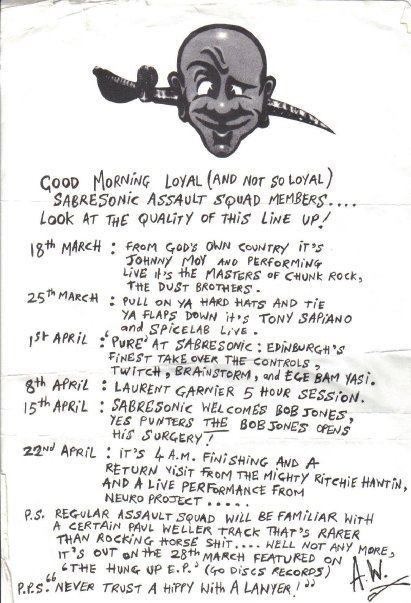 GOOD MORNING LOYAL (AND NOT SO LOYAL)
SABRESONIC ASSAULT SQUAD MEMBERS....
LOOK AT THE QUALITY OF THIS LINE UP!
18th MARCH : FROM GOD'S OWN COUNTRY IT'S
JOHNNY MOY AND PERFORMING
LIVE it's THE MASTERS OF CHUNK ROCK,
THE DUST BROTHERS.
25th MARCH : PULL ON YA HARD HATS AND TIE
YA FLAPS DOWN it's TONY SAPIANO
and SPICELAB LIVE.
1st APRIL : 'PURE' AT SABRESONIC : EDINBURGH'S
FINEST TAKE OVER THE CONTROLS,
TWITCH, BRAINSTORM, and EGE BAM YASI.
8th APRIL : LAURENT GARNIER 5 HOUR SESSION.
15th APRIL : SABRESONIC WELCOMES BOB JONES,
YES PUNTERS THE BOB JONES OPENS
HIS SURGERY!
22nd APRIL : IT'S 4 A.M. FINISHING AND A
RETURN VISIT FROM THE MIGHTY RITCHIE HAWTIN,
AND A LIVE PERFORMANCE FROM
NEURO PROJECT.....
P.S. REGULAR ASSAULT SQUAD WILL BE FAMILIAR WITH
A CERTAIN PAUL WELLER TRACK THAT'S RARER
THAN ROCKING HORSE SHIT.... WELL NOT ANY MORE,
IT'S OUT ON the 28th MARCH FEATURED ON
"THE HUNG UP E.P." (GO DISCS RECORDS)
P.P.S. "NEVER TRUST A HIPPY WITH A LAWYER!"
A.W.